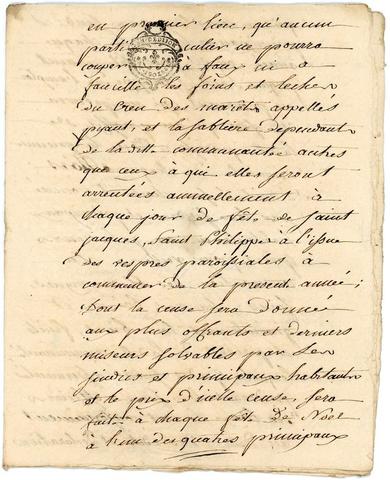 en premier lieu, qu'aucun
particulier ne pourra
couper à faux ni à
faucille les foins et leches
du Creu des marets appellés
et la sablière dependant
de la ditte communauté autres
que ceux à qui elles seront
arrentées annuellement à
chaque jour de fête de saint
jacques, saint Philippe à l'issue
des vespres paroissiales à
commencer de la presente année;
Dont la cense sera donné
aux plus offrants et derniers
miseurs solvables par les
sindics et principaux habitants
et le prix d'icelle cense, sera
fait à chaque fête de Noel
à l'un des quatres principaux